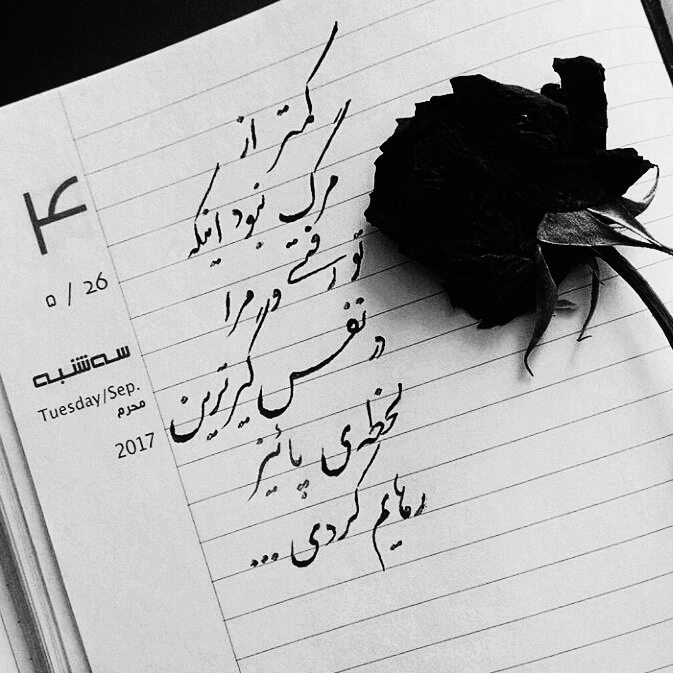 کمتر از
مرگ نبود اینکه
تو رفتی و مرا
در نفس گیرترین
لحظه‌ی پائیز
رهایم کردی ...
۴
۵ / 26
سه‌شنبه
Tuesday/Sep.
محرم
2017